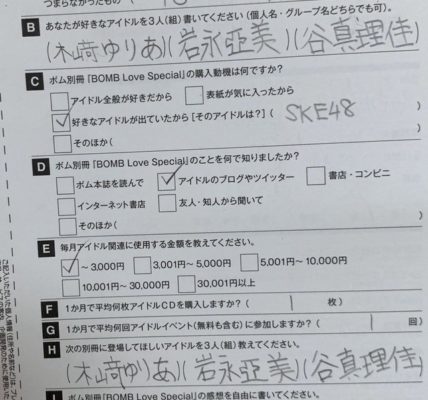 つまらなかったもの
B あなたが好きなアイドルを3人(組)書いてください(個人名・グループ名どちらでも可)。
(木﨑ゆりあ)(岩永亞美)(谷真理佳)
C ボム別冊「BOMB Love Special」の購入動機は何ですか?
アイドル全般が好きだから 表紙が気に入ったから
好きなアイドルが出ていたから[そのアイドルは?]( SKE48 )
そのほか(
D ボム別冊「BOMB Love Special」のことを何で知りましたか?
ボム本誌を読んで アイドルのブログやツイッター 書店・コンビニ
インターネット書店 友人・知人から聞いて
そのほか(
E 毎月アイドル関連に使用する金額を教えてください。
~3,000円 3,001円~5,000円 5,001円~10,000円
10,001円~30,000円 30,001円以上
F 1か月で平均何枚アイドルCDを購入しますか?( 枚)
G 1か月で平均何回アイドルイベント(無料も含む)に参加しますか?( 回)
H 次の別冊に登場してほしいアイドルを3人(組)教えてください。
(木﨑ゆりあ)(岩永亞美)(谷真理佳)
I ボム別冊「BOMB Love Special」の感想を自由に書いてください。